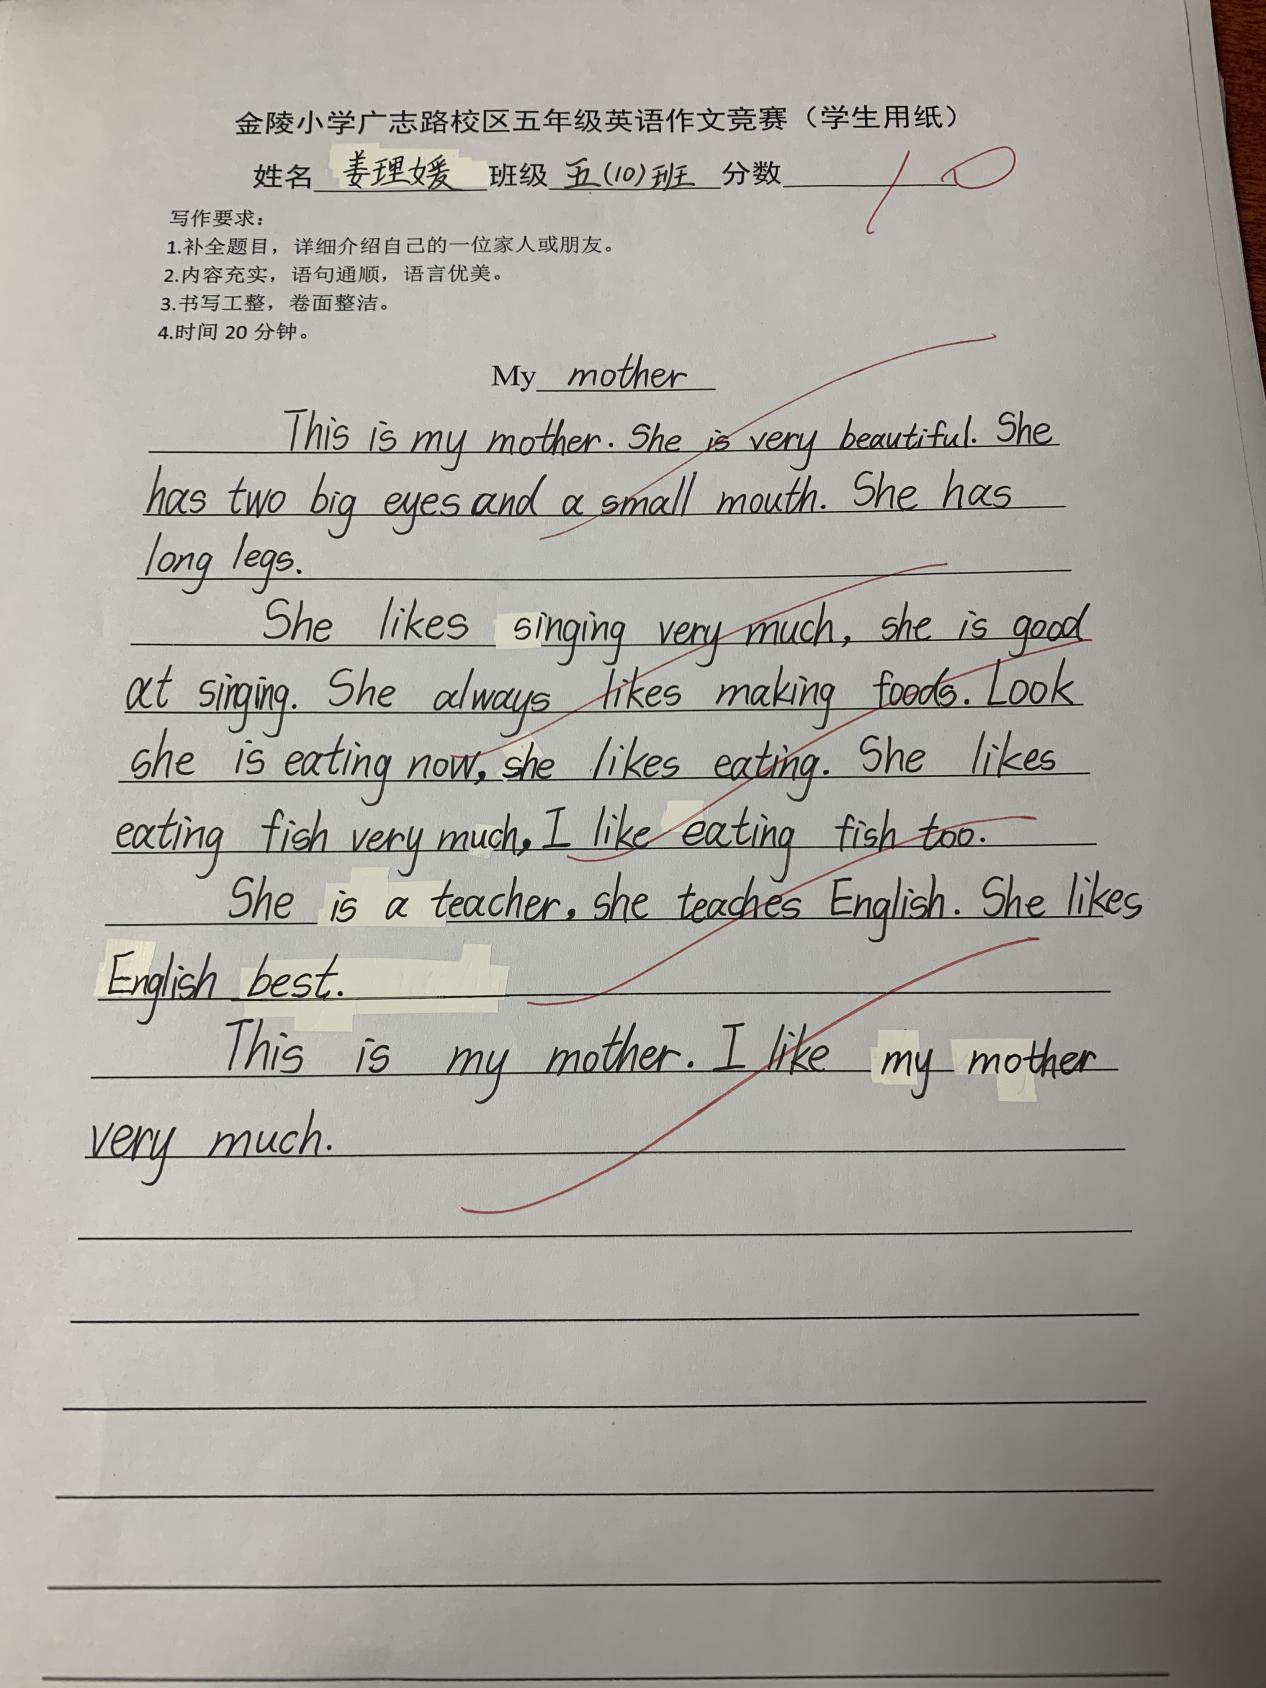 金陵小学广志路校区五年级英语作文竞赛（学生用纸）
姓名 姜理媛 班级 五(10)班 分数 10
写作要求：
1.补全题目，详细介绍自己的一位家人或朋友。
2.内容充实，语句通顺，语言优美。
3.书写工整，卷面整洁。
4.时间 20 分钟。
My mother
This is my mother. She is very beautiful. She
has two big eyes and a small mouth. She has
long legs.
She likes singing very much, she is good
at singing. She always likes making foods. Look
she is eating now, she likes eating. She likes
eating fish very much, I like eating fish too.
She is a teacher, she teaches English. She likes
English best.
This is my mother. I like my mother
very much.